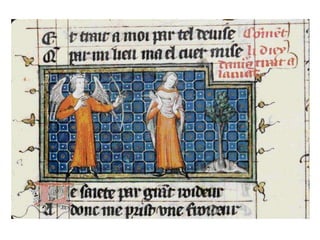 Et trait a moi par tel deuise
Coment
Q par mi lieu ma el cuer mise
li diex
damors trait a
lamant
De saiete par grant roideur
A donc me prist vne froideur